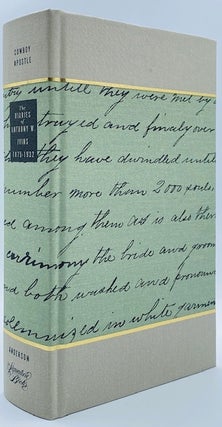 COWBOY APOSTLE
The
DIARIES
of
ANTHONY W.
IVINS
1875-1932
ANDERSON
Signature
Books
untill they were met by
and finaly over
they have dwindled until
number more than 2000 souls,
among them as is also the
the bride and groom
and both washed and
in white